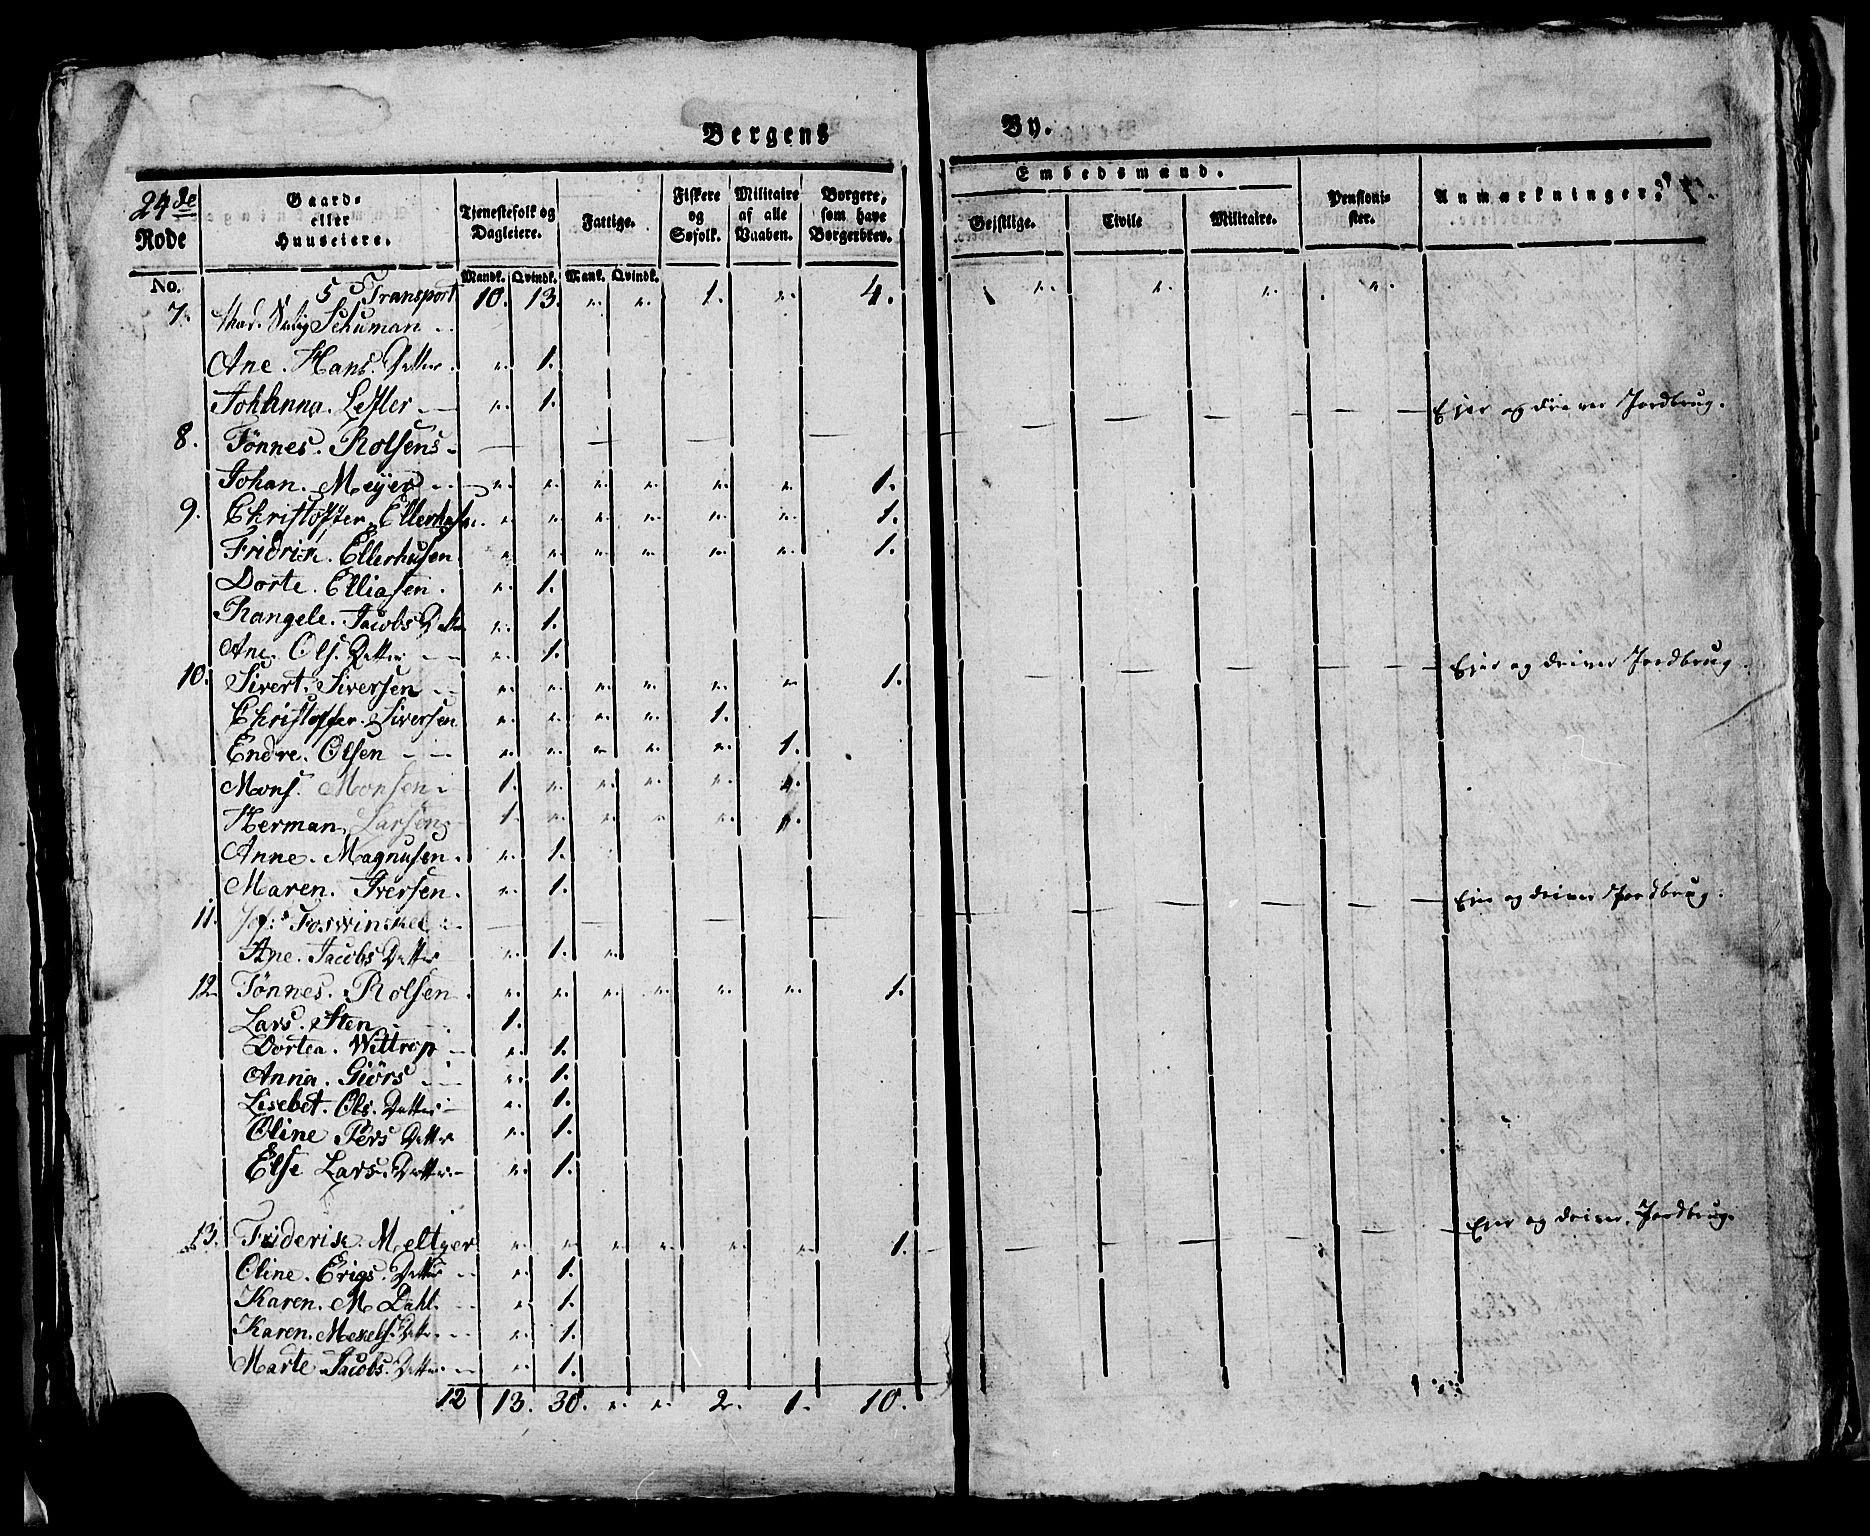 Bergens By.
24de Rode
Gaard- eller Huuseiere.
Tjenestefolk og Dagleiere.
Fattige.
Fiskere og Søfolk.
Militaire af alle Vaaben.
Borgere, som have Borgerbrev.
Embedsmænd.
Geistlige. Civile Militaire.
Pensionister.
Anmærkninger.
No. Mandk. Qvindk. Mank. Qvindk.
5 Transport 10. 13. " " 1. " 4. " " " "
7. Schuman
Ane. Hans. Datter. " 1.
Johanna. Lesler " 1.
8. Tönnes. Rolfsens — — — — — — — — — Ejer og driver Jordbrug.
Johan. Meÿer " " " " " " 1.
9. Christoffer. Ellerhusen. " " " " " " 1.
Fridrik. Ellerhusen. " " " " " " 1.
Dorte. Elliasen. " 1.
Rangele. Jacobs Datter " 1.
Ane. Ols. Datter " 1.
10. Sivert. Siversen " " " " " " 1. — — — — Ejer og driver Jordbrug.
Christoffer. Siversen " " " " 1.
Endre. Olsen " " " " " 1.
Mons. Monsen 1. " " " "
Herman. Larsen 1. " " " "
Anne. Magnusen. " 1.
Maren. Iversen. " 1.
11. Foswinckel — — — — — — — — Ejer og driver Jordbrug.
Ane. Jacobs Datter " 1. "
12 Tönnes. Rolfsen " " " " " " 1.
Lars. Sten 1.
Dortea. Wittrop " 1.
Anna. Giörs " 1.
Lisebet. Ols. Datter " 1.
Oline Pers Datter " 1.
Else Lars. Datter " 1.
13. Friderik. Meltzer " " " " " " 1. — — — — Ejer og driver. Jordbrug.
Oline. Erigs. Datter " 1.
Karen. M. Dahl. " 1.
Karen. Datter " 1.
Marte Jacobs. Datter. " 1.
12 13. 30. " " 2. 1. 10.